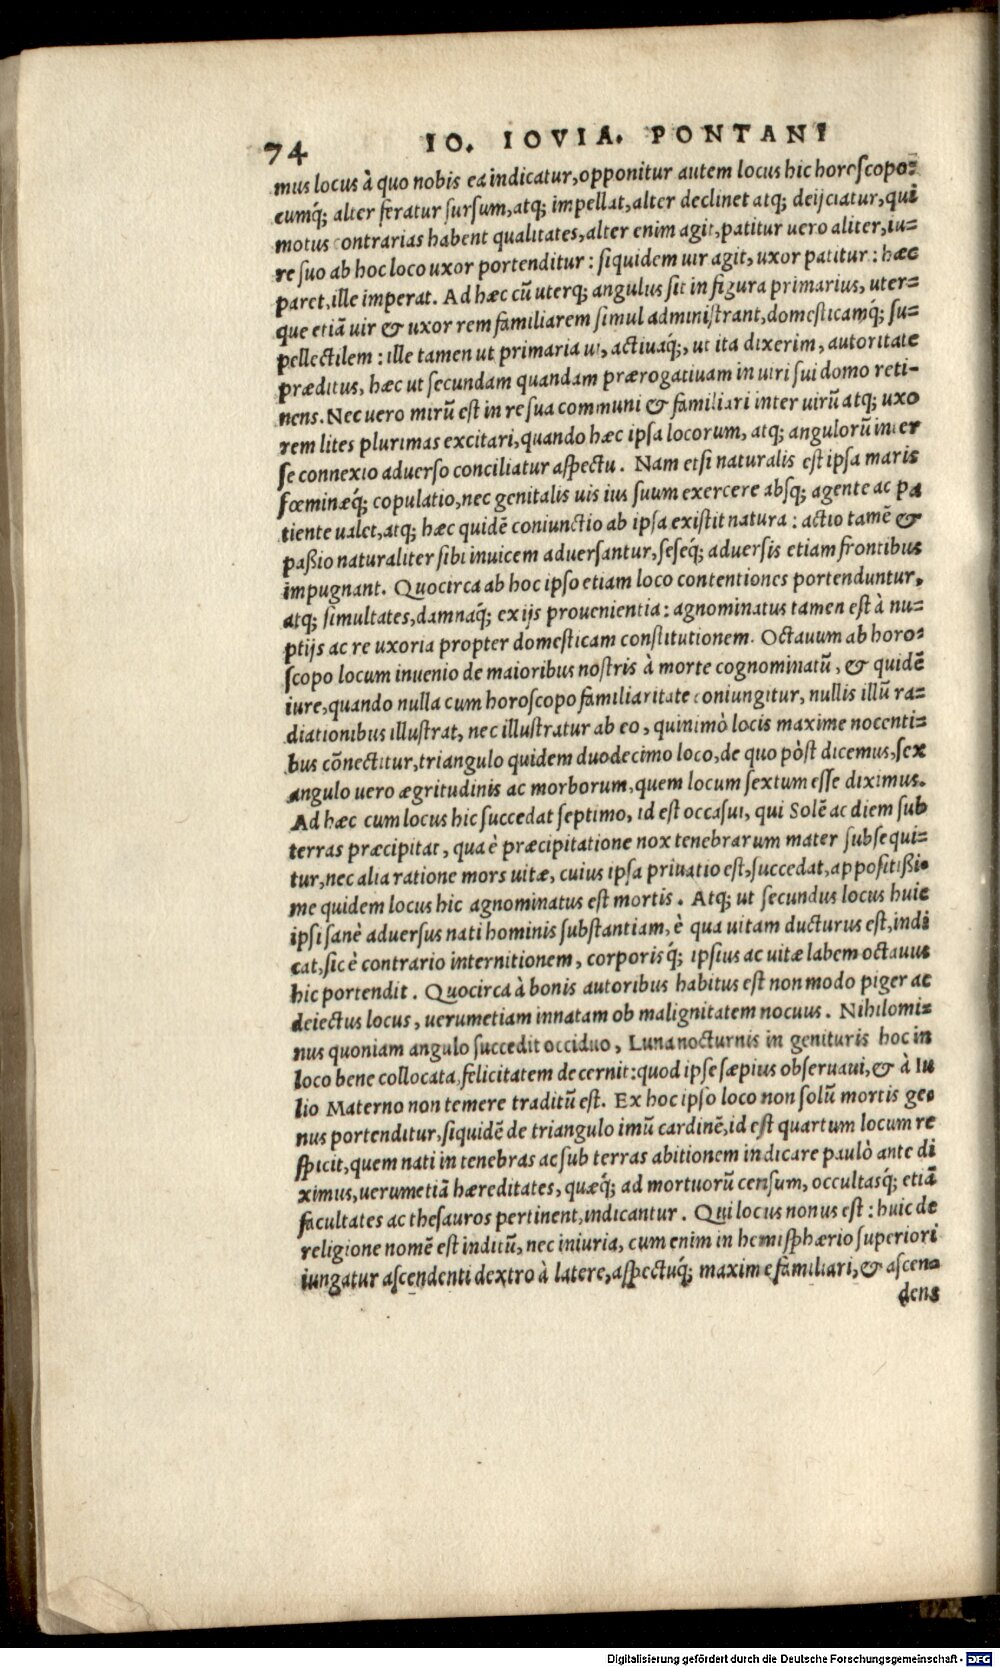 74 IO. IOVIA. PONTANI
mus locus à quo nobis ea indicatur, opponitur autem locus hic horoscopo⸗
cumq́; alter feratur sursum, atq; impellat, alter declinet atq; deijciatur, qui
motus contrarias habent qualitates, alter enim agit, patitur uero aliter, iu⸗
re suo ab hoc loco uxor portenditur: siquidem uir agit, uxor patitur: hæc
paret, ille imperat. Ad hæc cū uterq; angulus sit in figura primarius, uter⸗
que etiā uir & uxor rem familiarem simul administrant, domesticamq́; su⸗
pellectilem: ille tamen ut primaria ui, actiuaq́;, ut ita dixerim, autoritate
præditus, hæc ut secundam quandam prærogatiuam in uiri sui domo reti-
nens. Nec uero mirū est in re sua communi & familiari inter uirū atq; uxo
rem lites plurimas excitari, quando hæc ipsa locorum, atq; angulorū inter
se connexio aduerso conciliatur aspectu. Nam etsi naturalis est ipsa maris
fœminæq́; copulatio, nec genitalis uis ius suum exercere absq; agente ac pa
tiente ualet, atq; hæc quidē coniunctio ab ipsa existit natura: actio tamē &
paßio naturaliter sibi inuicem aduersantur, seseq́; aduersis etiam frontibus
impugnant. Quocirca ab hoc ipso etiam loco contentiones portenduntur,
atq; simultates, damnaq́; ex ijs prouenientia: agnominatus tamen est à nu⸗
ptijs ac re uxoria propter domesticam constitutionem. Octauum ab horo⸗
scopo locum inuenio de maioribus nostris à morte cognominatū, & quidē
iure, quando nulla cum horoscopo familiaritate coniungitur, nullis illū ra⸗
diationibus illustrat, nec illustratur ab eo, quinimò locis maxime nocenti⸗
bus cōnectitur, triangulo quidem duodecimo loco, de quo pòst dicemus, sex
angulo uero ægritudinis ac morborum, quem locum sextum esse diximus.
Ad hæc cum locus hic succedat septimo, id est occasui, qui Solē ac diem sub
terras præcipitat, qua è præcipitatione nox tenebrarum mater subsequi⸗
tur, nec alia ratione mors uitæ, cuius ipsa priuatio est, succedat, appositißi⸗
me quidem locus hic agnominatus est mortis. Atq; ut secundus locus huic
ipsi sanè aduersus nati hominis substantiam, è qua uitam ducturus est, indi
cat, sic è contrario internitionem, corporisq́; ipsius ac uitæ labem octauus
hic portendit. Quocirca à bonis autoribus habitus est non modo piger ac
deiectus locus, uerumetiam innatam ob malignitatem nocuus. Nihilomi⸗
nus quoniam angulo succedit occiduo, Luna nocturnis in genituris hoc in
loco bene collocata, felicitatem decernit: quod ipse sæpius obseruaui, & à Iu
lio Materno non temere traditū est. Ex hoc ipso loco non solū mortis ge⸗
nus portenditur, siquidē de triangulo imū cardinē, id est quartum locum re
spicit, quem nati in tenebras ac sub terras abitionem indicare paulò ante di
ximus, uerumetiā hæreditates, quæq́; ad mortuorū censum, occultasq́; etiā
facultates ac thesauros pertinent, indicantur. Qui locus nonus est: huic de
religione nomē est inditū, nec iniuria, cum enim in hemisphærio superiori
iungatur ascendenti dextro à latere, aspectuq́; maxime familiari, & ascen⸗
dens
Digitalisierung gefördert durch die Deutsche Forschungsgemeinschaft - DFG